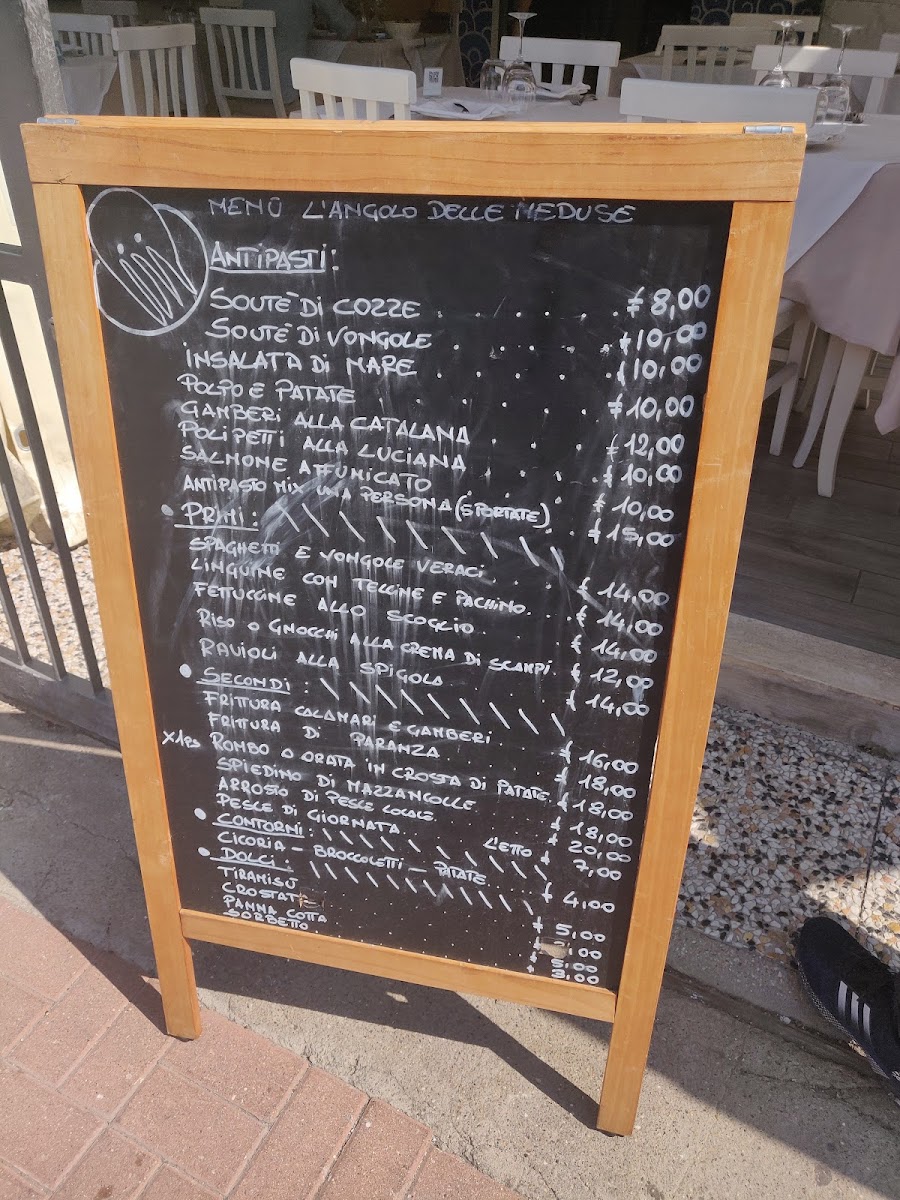 MENÙ L'ANGOLO DELLE MEDUSE
ANTIPASTI:
SOUTÈ DI COZZE € 8,00
SOUTÈ DI VONGOLE € 10,00
INSALATA DI MARE € 10,00
POLPO E PATATE € 10,00
GAMBERI ALLA CATALANA € 12,00
POLIPETTI ALLA LUCIANA € 10,00
SALMONE AFFUMICATO € 10,00
ANTIPASTO MIX UNA PERSONA (5 PORTATE) € 15,00
• PRIMI:
SPAGHETTI E VONGOLE VERACI € 14,00
LINGUINE CON TELLINE E PACHINO € 14,00
FETUCCINE ALLO SCOGLIO € 14,00
RISO O GNOCCHI ALLA CREMA DI SCAMPI € 12,00
RAVIOLI ALLA SPIGOLA € 14,00
• SECONDI:
FRITTURA CALAMARI E GAMBERI € 16,00
FRITTURA DI PARANZA € 18,00
X1PS ROMBO O ORATA IN CROSTA DI PATATE € 18,00
SPIEDINO DI MAZZANCOLLE € 18,00
ARROSTO DI PESCE LOCALE € 20,00
PESCE DI GIORNATA L'ETTO € 7,00
• CONTORNI:
CICORIA - BROCCOLETTI - PATATE € 4,00
• DOLCI:
TIRAMISÙ € 5,00
CROSTATE ,00
PANNA COTTA € 5,00
SORBETTO € 3,00